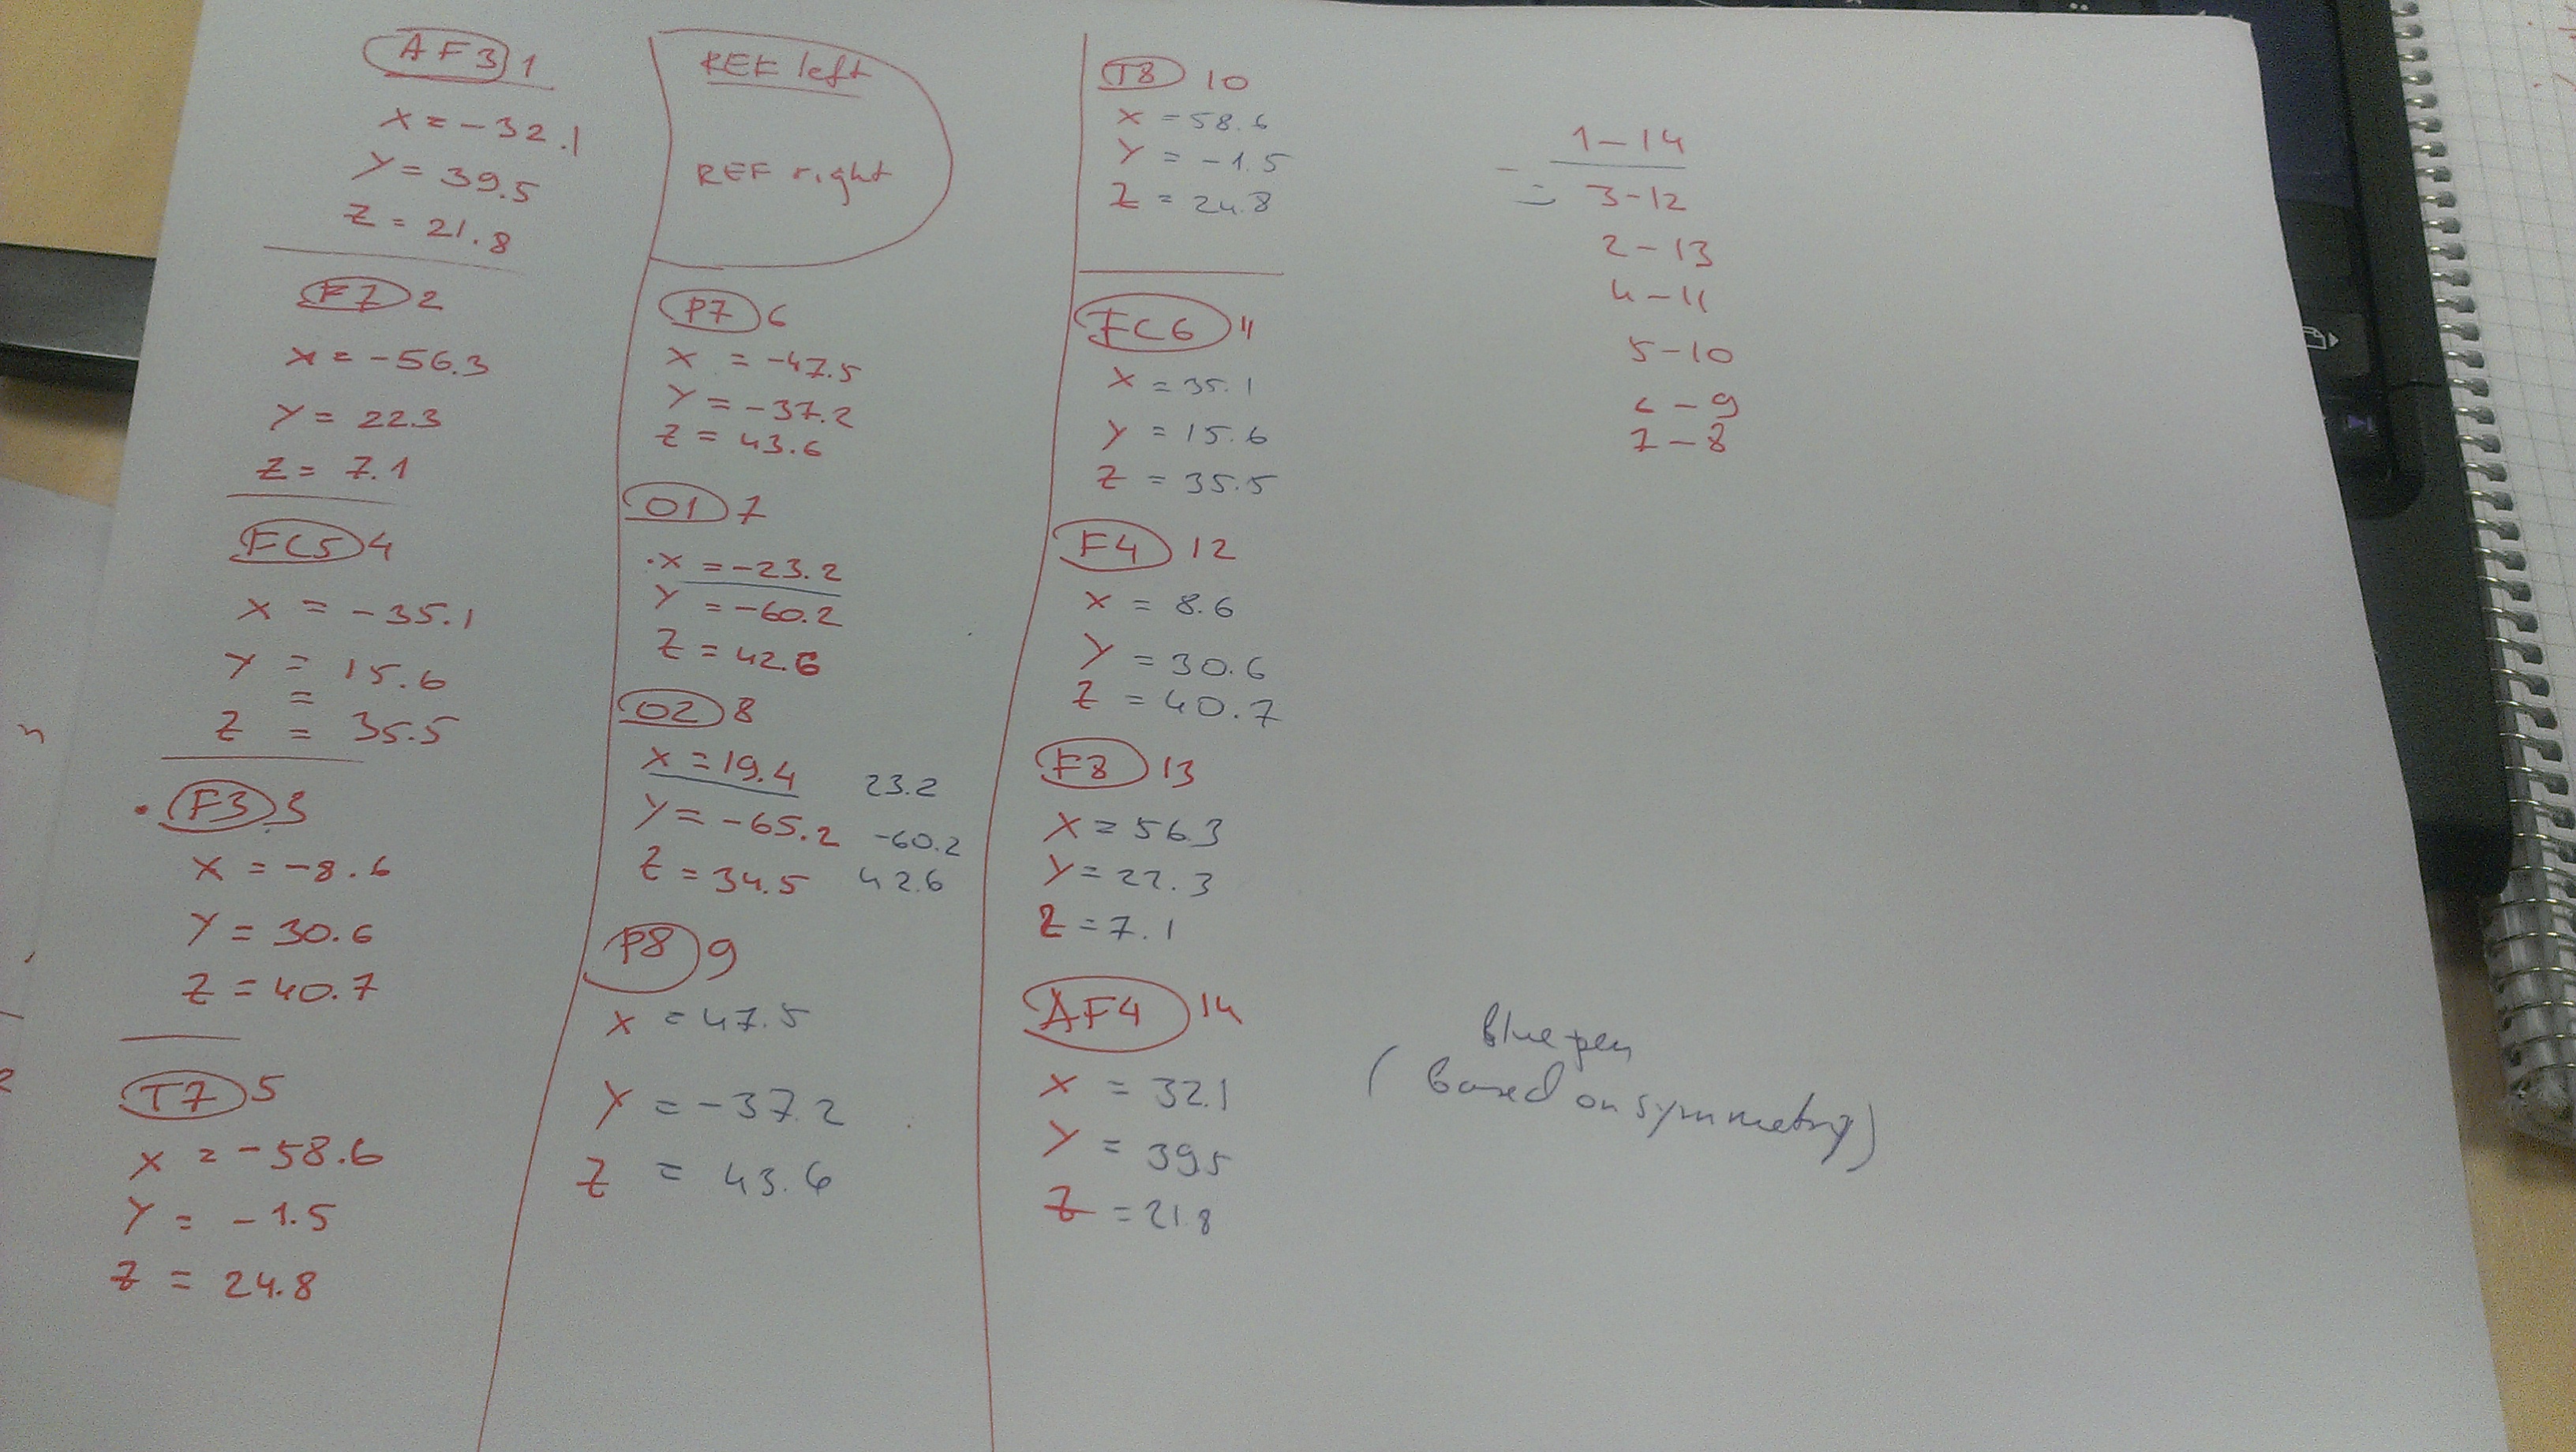 AF3 1
X = -32.1
Y = 39.5
Z = 21.8
F7 2
X = -56.3
Y = 22.3
Z = 7.1
FC5 4
X = -35.1
Y = 15.6
=
Z = 35.5
F3 3
X = -8.6
Y = 30.6
Z = 40.7
T7 5
X = -58.6
Y = -1.5
Z = 24.8
REF left
REF right
P7 6
X = -47.5
Y = -37.2
Z = 43.6
O1 7
X = -23.2
Y = -60.2
Z = 42.6
O2 8
X = 19.4 23.2
Y = -65.2 -60.2
Z = 34.5 42.6
P8 9
X = 47.5
Y = -37.2
Z = 43.6
T8 10
X = 58.6
Y = -1.5
Z = 24.8
FC6 11
X = 35.1
Y = 15.6
Z = 35.5
F4 12
X = 8.6
Y = 30.6
Z = 40.7
F8 13
X = 56.3
Y = 22.3
Z = 7.1
AF4 14
X = 32.1
Y = 39.5
Z = 21.8
1-14
3-12
2-13
4-11
5-10
6-9
7-8
Blue pen
(based on symmetry)